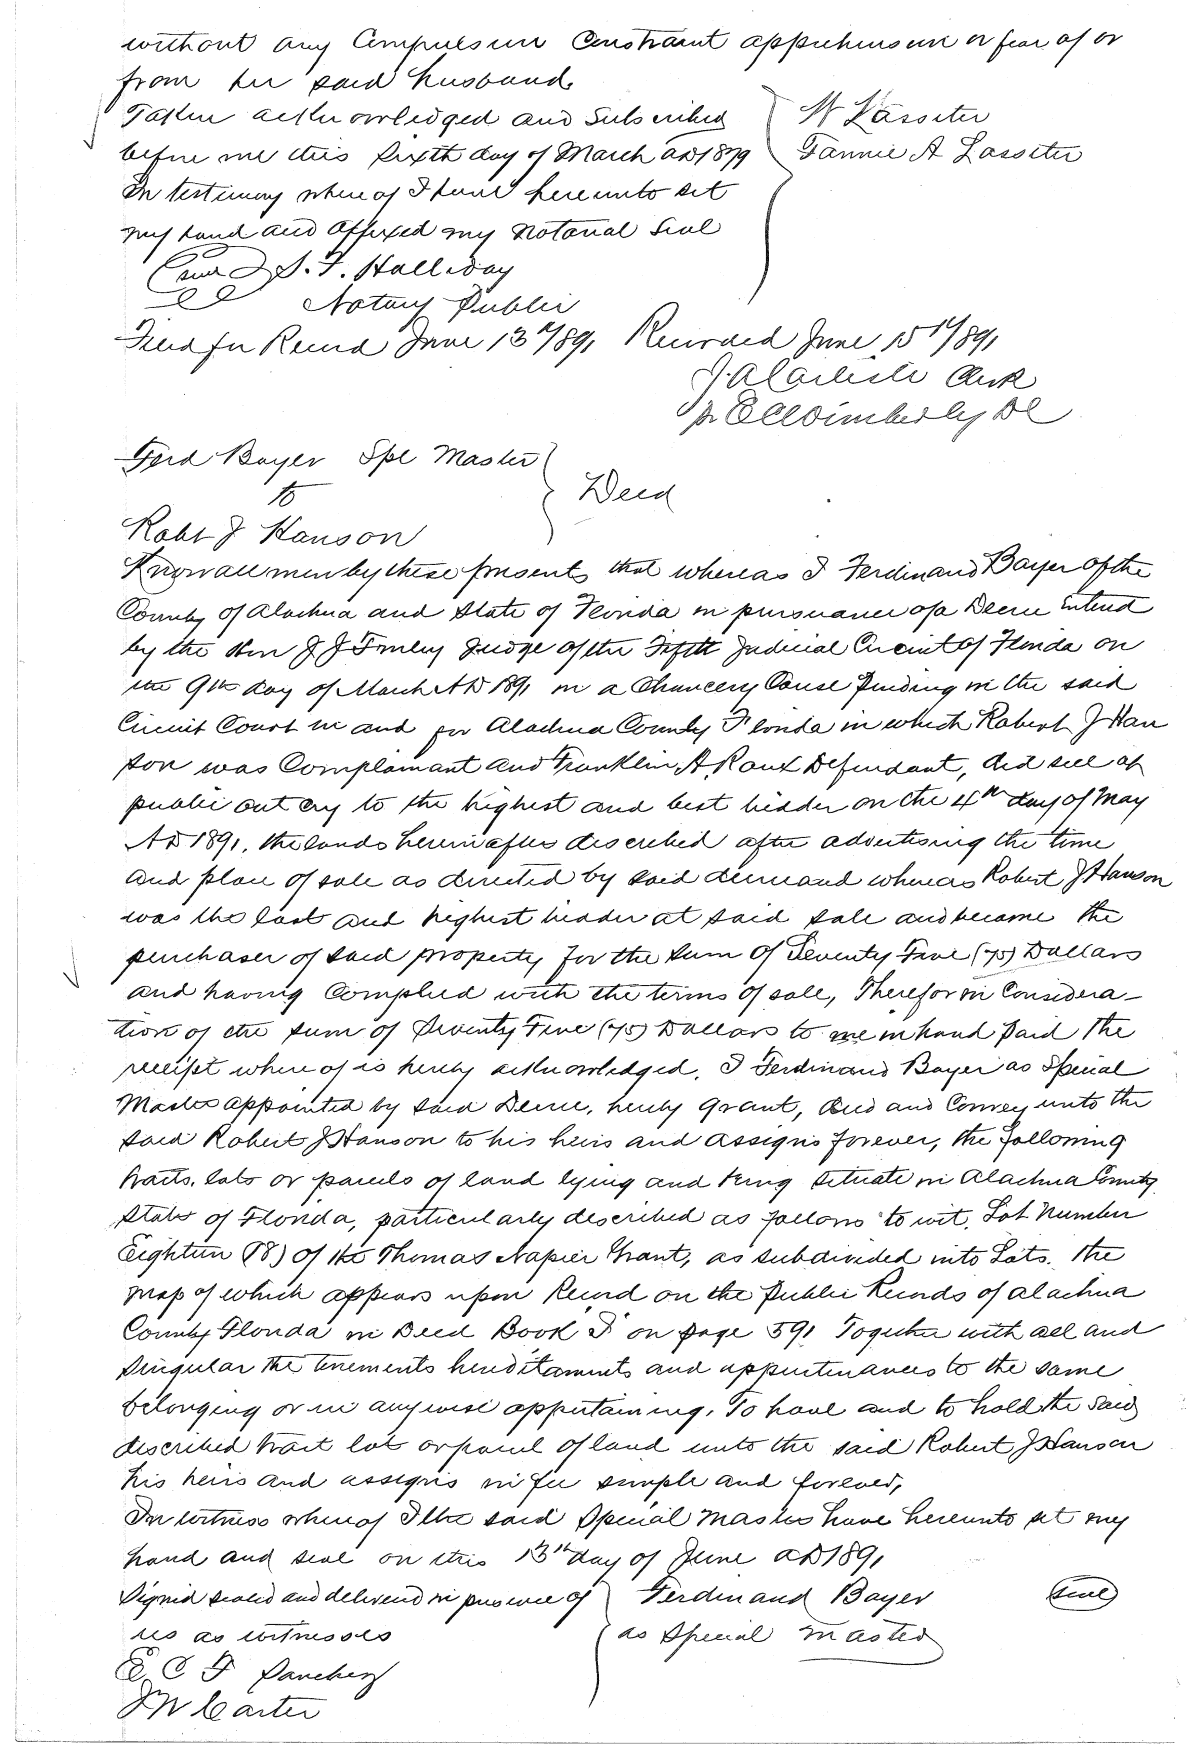 without any Compulsion Constraint apprehension or fear of or
from her said husband.
Taken acknowledged and Subscribed
before me this Sixth day of March AD 1879
In testimony where of I have hereunto set
my hand and Affixed my Notarial Seal
S. F. Halliday
Notary Public
W Lassiter
Fannie A Lassiter
Filed for Record June 13th 1891 Recorded June 15th 1891
J. A Carlisle Clerk
pr E C Wimberly DC
Ferd Bayer Spl Master
to
Robt J Hanson
Deed
Know all men by these presents that whereas I Ferdinand Bayer of the
County of Alachua and State of Florida in pursuance of a Decree entered
by the Hon J J Finley Judge of the Fifth Judicial Circuit of Florida on
the 9th day of March AD 1891 in a Chancery Cause pending in the said
Circuit Court in and for Alachua County Florida in which Robert J Han
son was Complainant and Franklin A Roux Defendant, did sell at
public out cry to the highest and best bidder on the 4th day of May
AD 1891, the lands herein after described after advertising the time
and place of sale as directed by said decree and whereas Robert J Hanson
was the last and highest bidder at said sale and became the
purchaser of said property for the sum of Seventy Five (75) Dollars
and having Complied with the terms of sale, Therefor in Considera-
tion of the sum of Seventy Five (75) Dollars to me in hand paid the
receipt where of is hereby acknowledged. I Ferdinand Bayer as Special
Master appointed by said Decree, hereby grant, and Convey unto the
said Robert J Hanson to his heirs and assigns forever, the following
tracts, lots or parcels of land lying and being situate in Alachua County
State of Florida, particularly described as follows to wit, Lot Number
Eighteen (18) of the Thomas Napier Grant, as subdivided into Lots. The
map of which appears upon Record on the Public Records of Alachua
County Florida in Deed Book I on page 591 Together with all and
singular the tenements hereditaments and appurtenances to the same
belonging or in anywise appertaining. To have and to hold the said
described tract lot or parcel of land unto the said Robert J Hanson
his heirs and assigns in fee simple and forever,
In witness where of I the said Special Master have hereunto set my
hand and seal on this 13th day of June AD 1891
Signed sealed and delivered in presence of
us as witnesses
Ferdinand Bayer
as Special Master
Seal
J W Carter